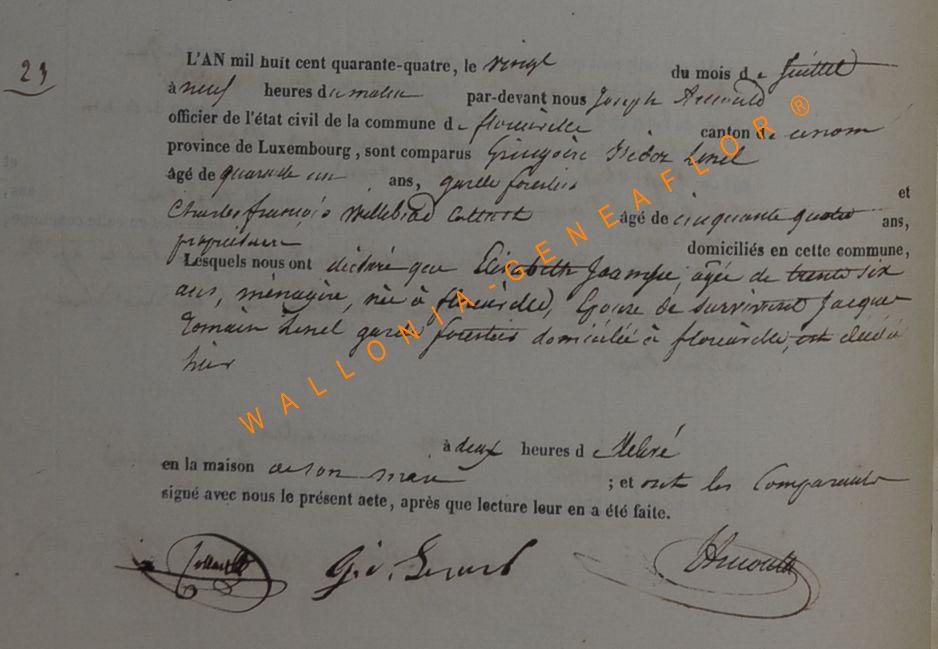 23
L'AN mil huit cent quarante-quatre, le vingt du mois de Juillet
à neuf heures du matin par-devant nous Joseph Arnould
officier de l'état civil de la commune de florenville canton de ce nom
province de Luxembourg, sont comparus Grégoire Isidor
âgé de quarante un ans, garde forestier et
Charles françois Willebrod âgé de cinquante quatre ans,
propriétaire domiciliés en cette commune,
Lesquels nous ont déclaré que Elisabeth agée de trente six
ans, ménagère, née à florenville, Epouse de survivant Jacque
romain garde forestier domiciliée à florenville, est décédée
hier
à deux heures de
en la maison de son mari ; et ont les Comparants
signé avec nous le présent acte, après que lecture leur en a été faite.
WALLONIA-GENEAFLOR®